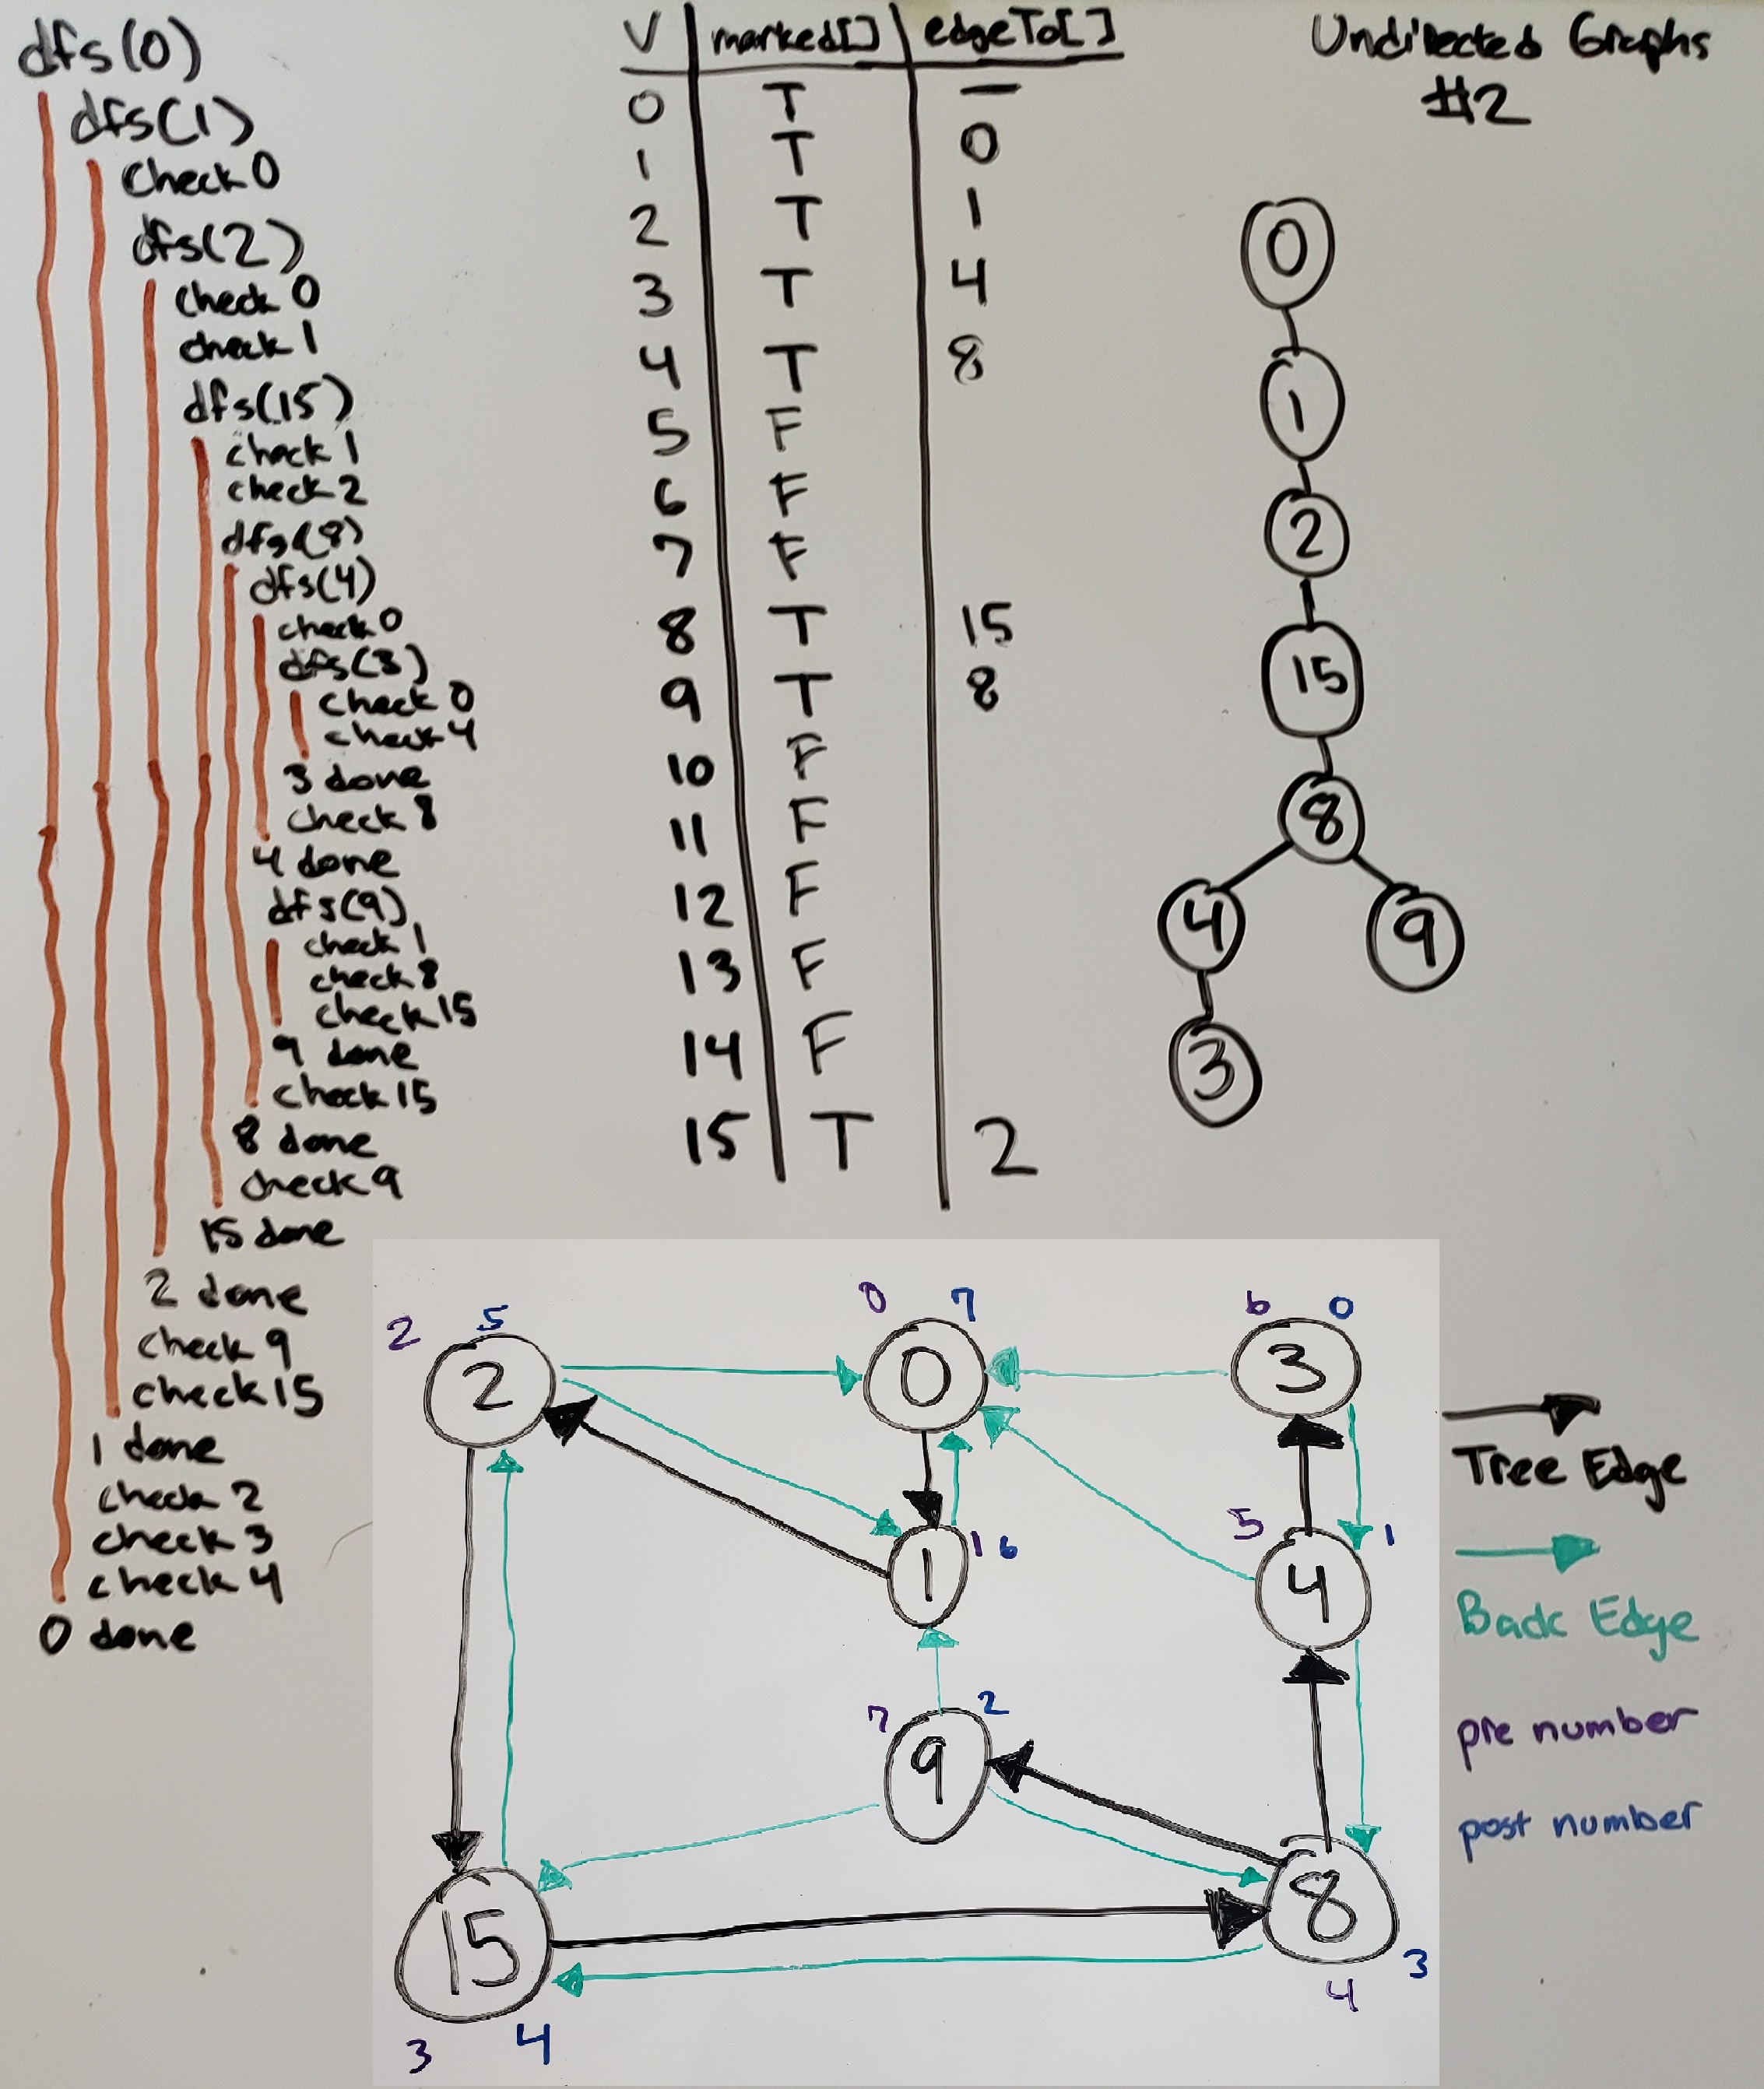 dfs(0)
dfs(1)
Check 0
dfs(2)
Check 0
check 1
dfs(15)
check 1
check 2
dfs(8)
dfs(4)
check 0
dfs(3)
check 0
check 4
3 done
check 8
4 done
dfs(9)
check 1
check 8
check 15
9 done
check 15
8 done
check 9
15 done
2 done
check 9
check 15
1 done
check 2
check 3
check 4
0 done
V marked[] edgeTo[]
0 T —
1 T 0
2 T 1
3 T 4
4 T 8
5 F
6 F
7 F
8 T 15
9 T 8
10 F
11 F
12 F
13 F
14 F
15 T 2
Undirected Graphs
#2
0
1
2
15
8
4 9
3
2 5 0 7 6 0
2 0 3
5 1
1 1 6 4
7 2
9
15 8
3 4 4 3
Tree Edge
Back Edge
pre number
post number